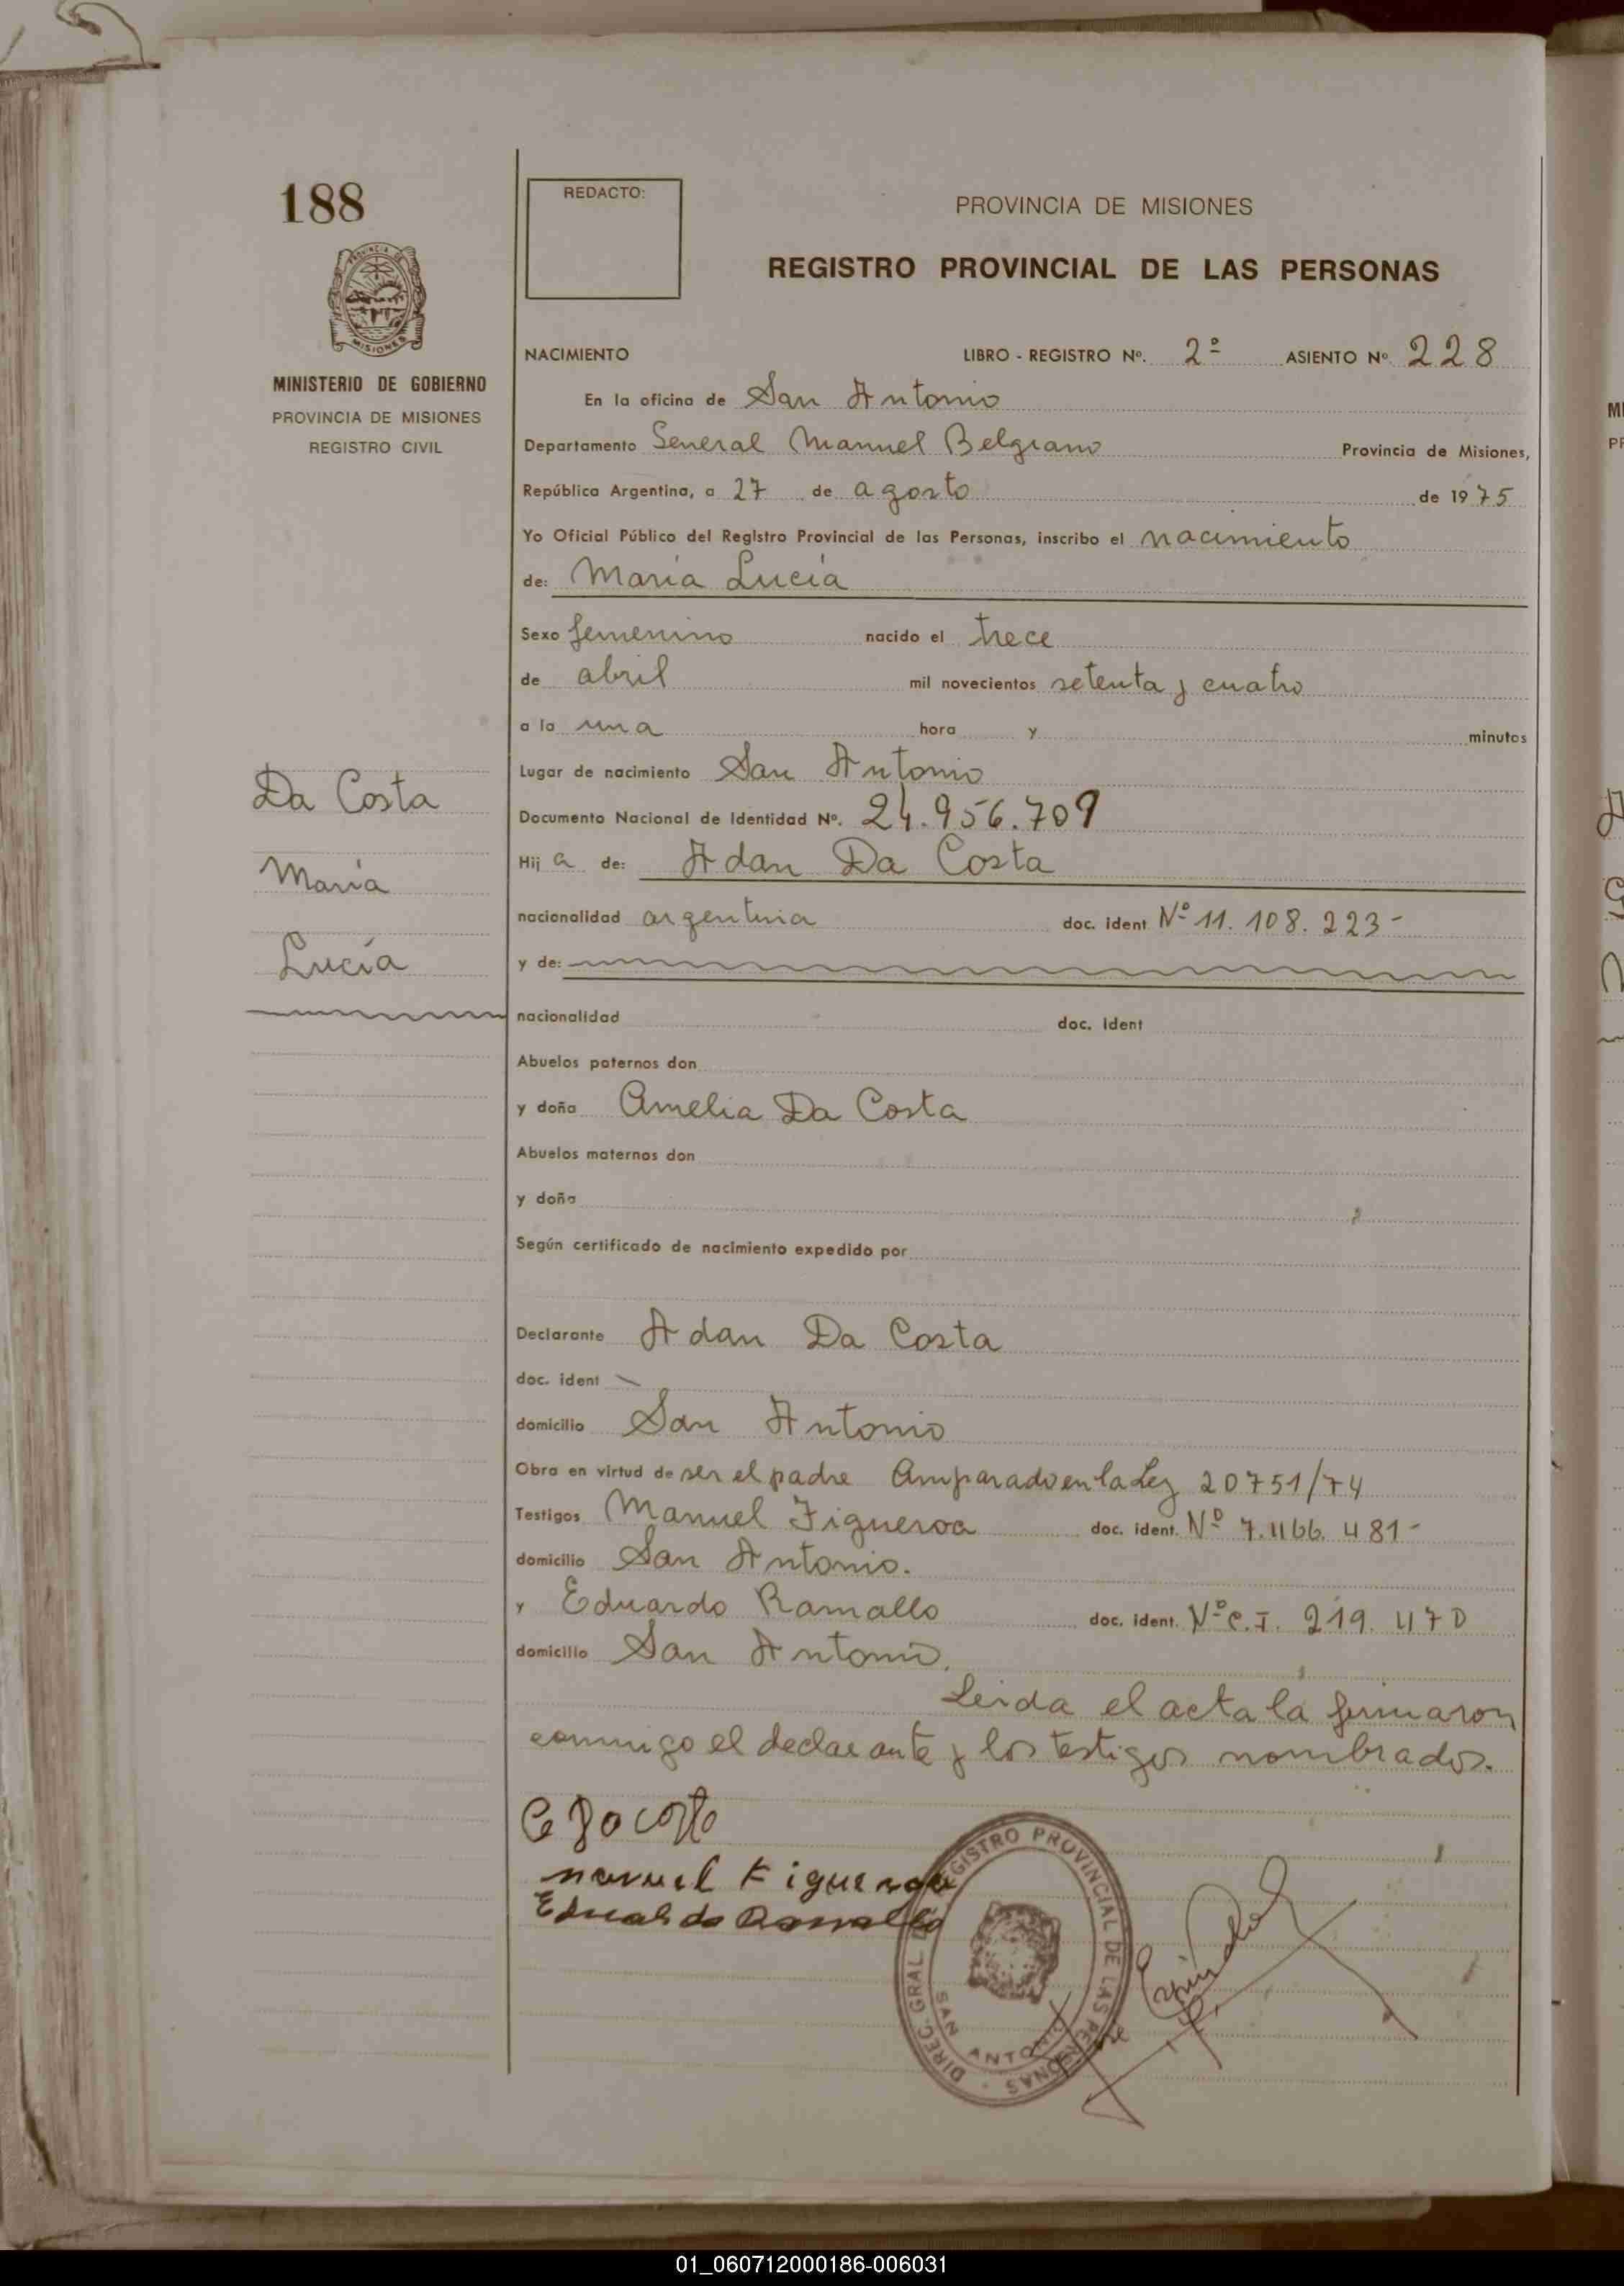 188
REDACTO:
PROVINCIA DE MISIONES
REGISTRO PROVINCIAL DE LAS PERSONAS
PROVINCIA DE
MISIONES
MINISTERIO DE GOBIERNO
PROVINCIA DE MISIONES
REGISTRO CIVIL
NACIMIENTO LIBRO - REGISTRO Nº. 2º ASIENTO Nº 228
En la oficina de San Antonio
Departamento General Manuel Belgrano Provincia de Misiones,
República Argentina, a 27 de agosto de 1975
Yo Oficial Público del Registro Provincial de las Personas, inscribo el nacimiento
de: María Lucía
Sexo femenino nacido el trece
de abril mil novecientos setenta y cuatro
a la una hora y minutos
Lugar de nacimiento San Antonio
Documento Nacional de Identidad Nº. 24.956.709
Hij a de: Adan Da Costa
nacionalidad argentina doc. ident Nº 11.108.223-
y de:
nacionalidad doc. Ident
Abuelos paternos don
y doña Amelia Da Costa
Abuelos maternos don
y doña
Según certificado de nacimiento expedido por
Declarante Adan Da Costa
doc. ident
domicilio San Antonio
Obra en virtud de ser el padre Amparado en la Ley 20751/74
Testigos Manuel Figueroa doc. ident. Nº 7.466.481-
domicilio San Antonio.
y Eduardo Ramallo doc. ident. Nº C.I. 219.470
domicilio San Antonio.
Leida el acta la firmaron
conmigo el declarante y los testigos nombrados.
Da Costa
María
Lucía
manuel Figueroa
Eduardo Ramallo
DIREC. GRAL DEL REGISTRO PROVINCIAL DE LAS PERSONAS
SAN ANTONIO
01_060712000186-006031